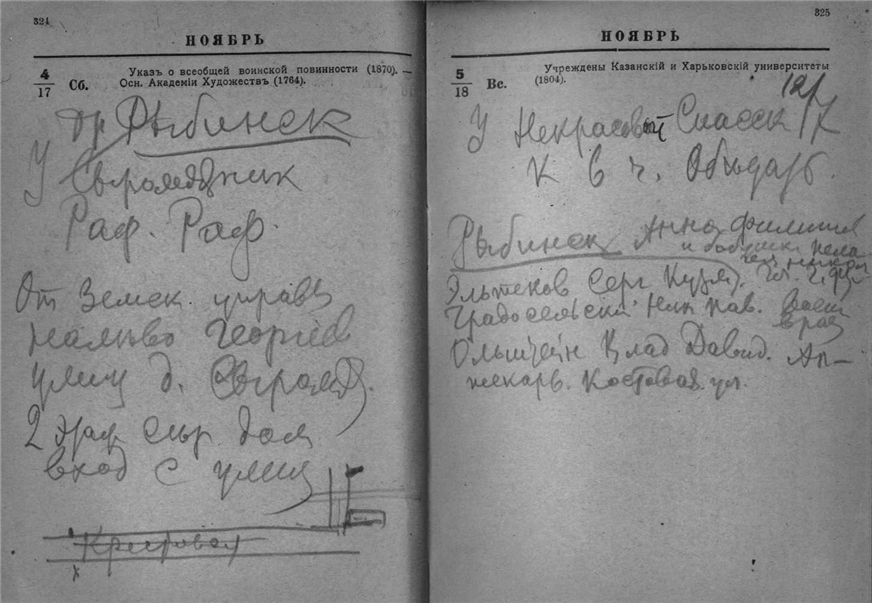 324
НОЯБРЬ
4
17
Сб.
Указъ о всеобщей воинской повинности (1870). —
Осн. Академіи Художествъ (1764).
Рыбинск
У
Раф. Раф.
От Земск. управы
налево Георгиев
улиц д.
2 этаж сер. дом
вход с улиц
Крестовая
325
НОЯБРЬ
5
18
Вс.
Учреждены Казанскій и Харьковскій университеты
(1804).
У Некрасовой Спасск
к 6 ч. Обедать.
Рыбинск Анна Филипп
и бабушки
Эльтеков Серг Кузм.
Градосельский Ник Пав. Воен
врач
Ольштейн Влад Давид. Ап-
текарь. Костовая ул.